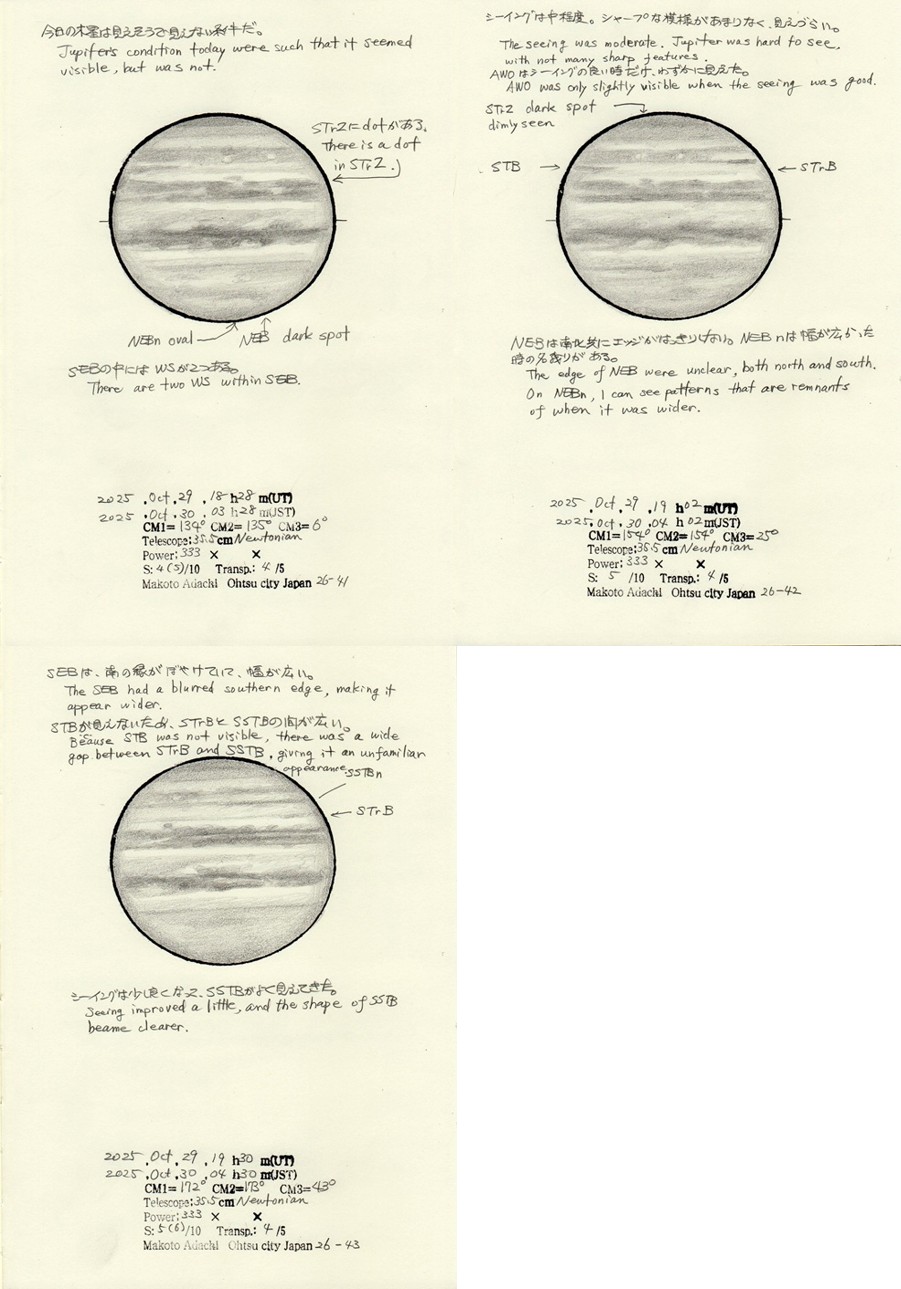 今日の木星は見えそうで見えない条件だ。
Jupiter's condition today were such that it seemed
visible, but was not.
STrZにdotがある。
There is a dot
in STrZ.
NEBn oval
NEB dark spot
SEBの中にはWSが2つある。
There are two WS within SEB.
2025 .Oct .29 .18 h28 m(UT)
2025 .Oct .30 .03 h28 m(JST)
CM1=134° CM2=135° CM3=6°
Telescope:35.5cm Newtonian
Power:333 × ×
S:4(5)/10 Transp.:4/5
Makoto Adachi Ohtsu city Japan 26-41
シーイングは中程度。シャープな模様があまりなく、見えづらい。
The seeing was moderate. Jupiter was hard to see,
with not many sharp features.
AWOはシーイングの良い時だけ、わずかに見えた。
AWO was only slightly visible when the seeing was good.
STrZ dark spot
dimly seen
STB
STrB
NEBは南北共にエッジがはっきりしない。NEBnは幅が広かった
時の名残りがある。
The edge of NEB were unclear, both north and south.
On NEBn, I can see patterns that are remnants
of when it was wider.
2025 .Oct .29 .19 h02 m(UT)
2025 .Oct .30 .04 h02 m(JST)
CM1=154° CM2=154° CM3=25°
Telescope:35.5cm Newtonian
Power:333 × ×
S: 5 /10 Transp.:4/5
Makoto Adachi Ohtsu city Japan 26-42
SEBは、南の縁がぼやけていて、幅が広い。
The SEB had a blurred southern edge, making it
appear wider.
STBが見えないため、STrBとSSTBの間が広い。
Because STB was not visible, there was a wide
gap between STrB and SSTB, giving it an unfamiliar
appearance.
SSTBn
STrB
シーイングは少し良くなって、SSTBがよく見えてきた。
Seeing improved a little, and the shape of SSTB
beame clearer.
2025 .Oct .29 .19 h30 m(UT)
2025 .Oct .30 .04 h30 m(JST)
CM1=172° CM2=173° CM3=43°
Telescope:35.5cm Newtonian
Power:333 × ×
S:5(6)/10 Transp.:4/5
Makoto Adachi Ohtsu city Japan 26-43